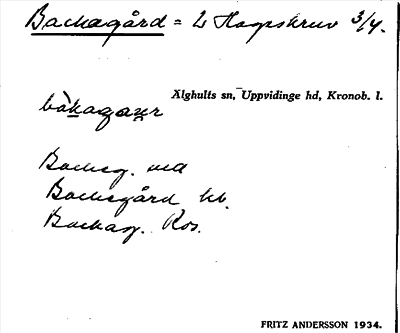 Backagård = L Hagaskruv 3/4.
Älghults sn, Uppvidinge hd, Kronob. l.
bàkagaɐr
Backeg. ved
Backegård kb.
Backag. Ros.
FRITZ ANDERSSON 1934.